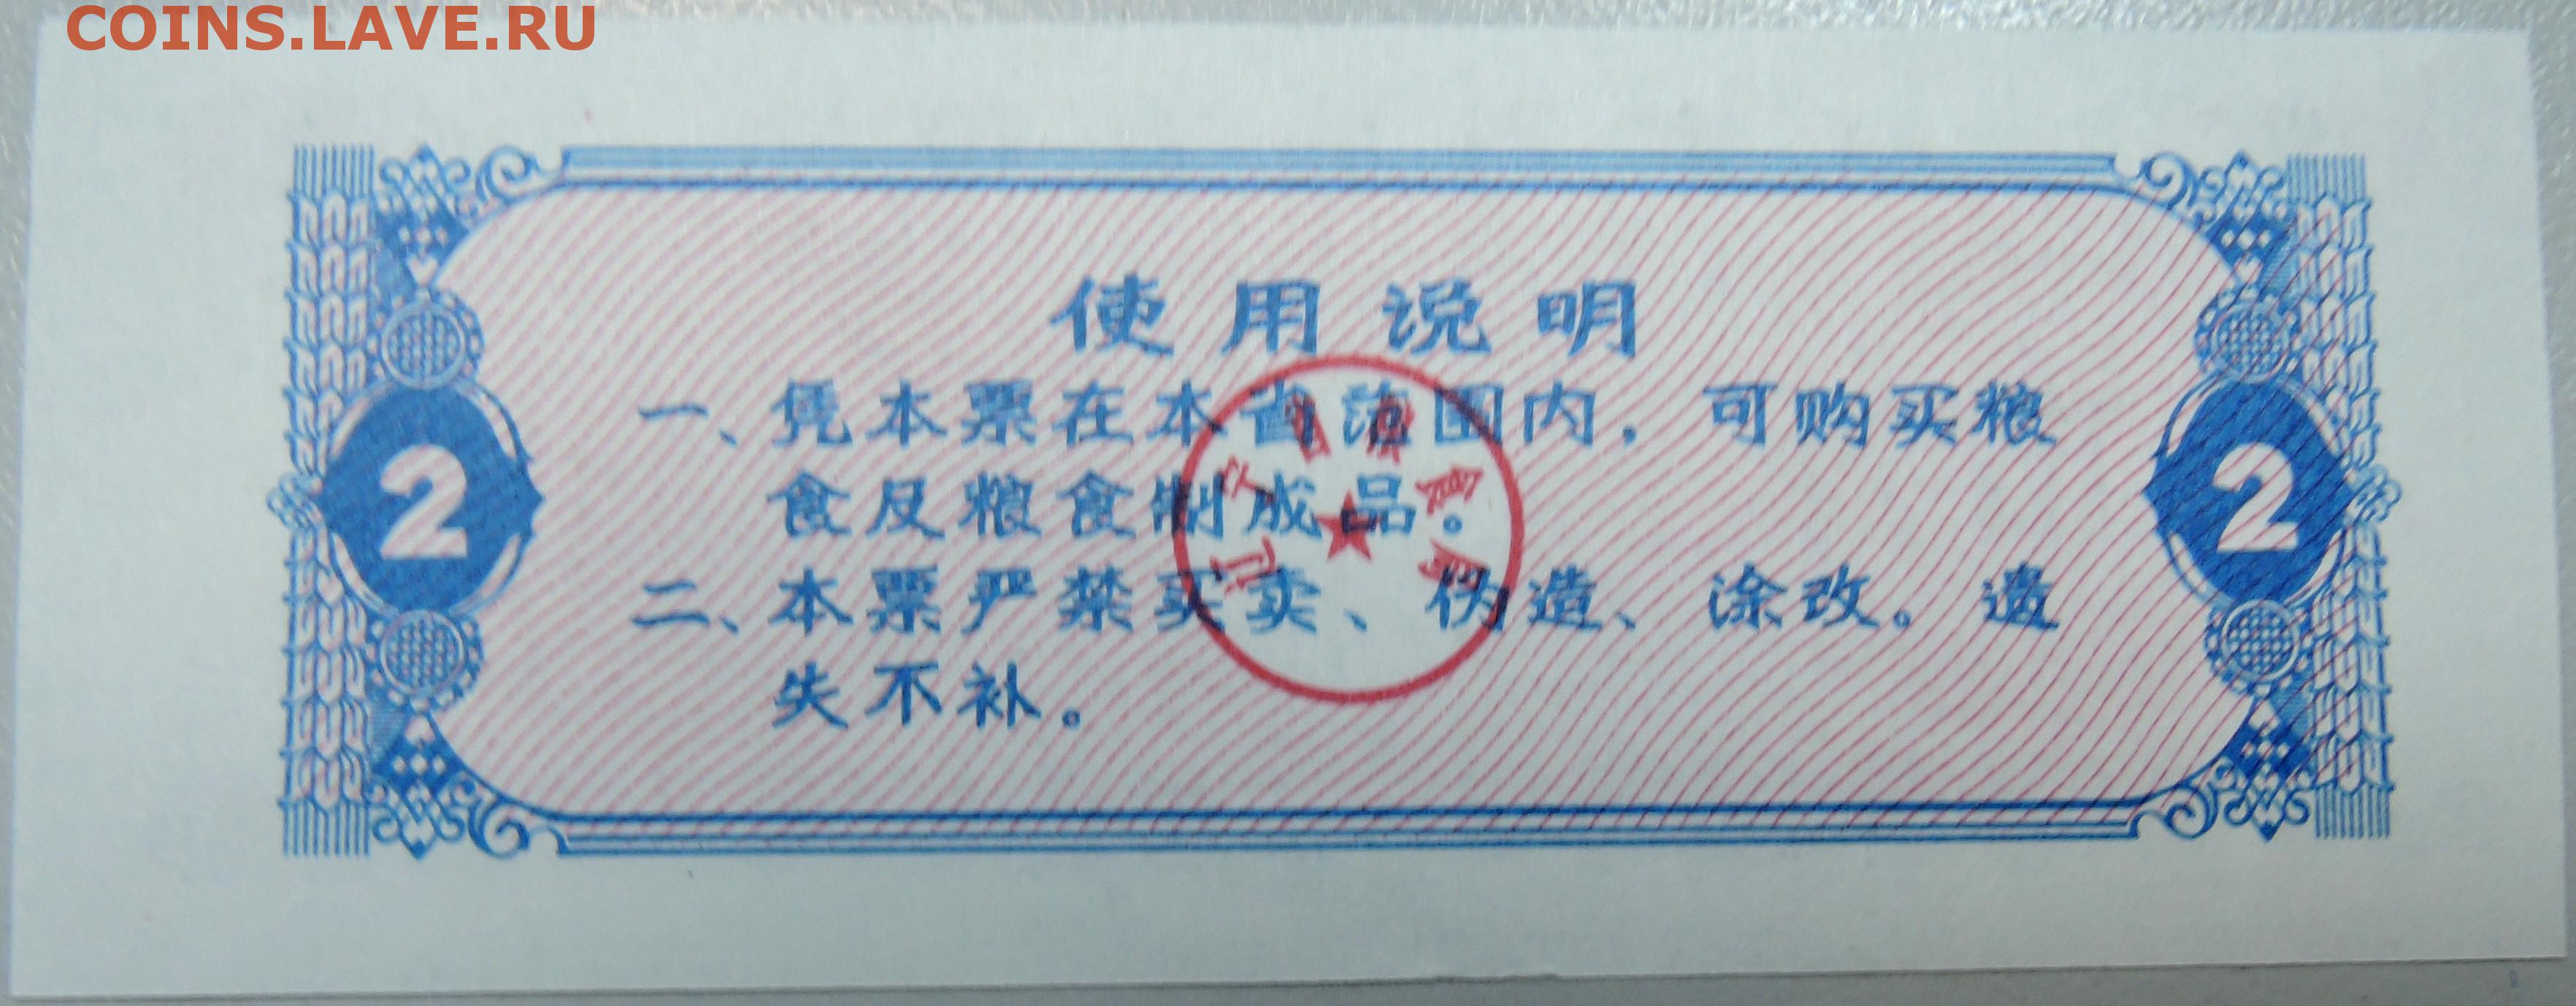 COINS.LAVE.RU
使用说明
一、凭本票在本省范围内，可购买粮
食及粮食制成品。
二、本票严禁买卖、伪造、涂改。遗
失不补。
2
2